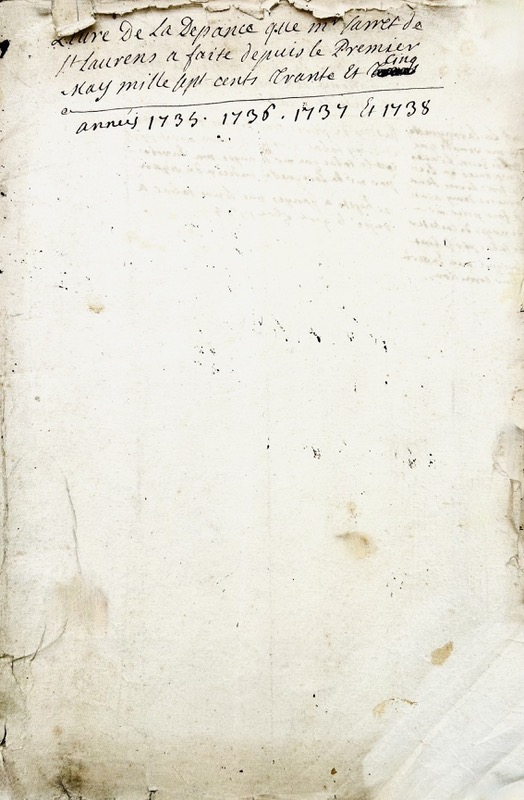 Livre De La Depance que mr Sarret de
St Laurens a faite depuis le Premier
May mille sept cents trante Et Cinq
années 1735. 1736. 1737 Et 1738